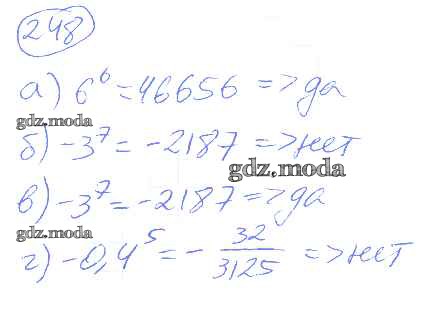 248
а) 6^6 = 46656 => да
gdz.moda
б) -3^7 = -2187 => нет
gdz.moda
в) -3^7 = -2187 => да
gdz.moda
г) -0,4^5 = - 32/3125 => нет